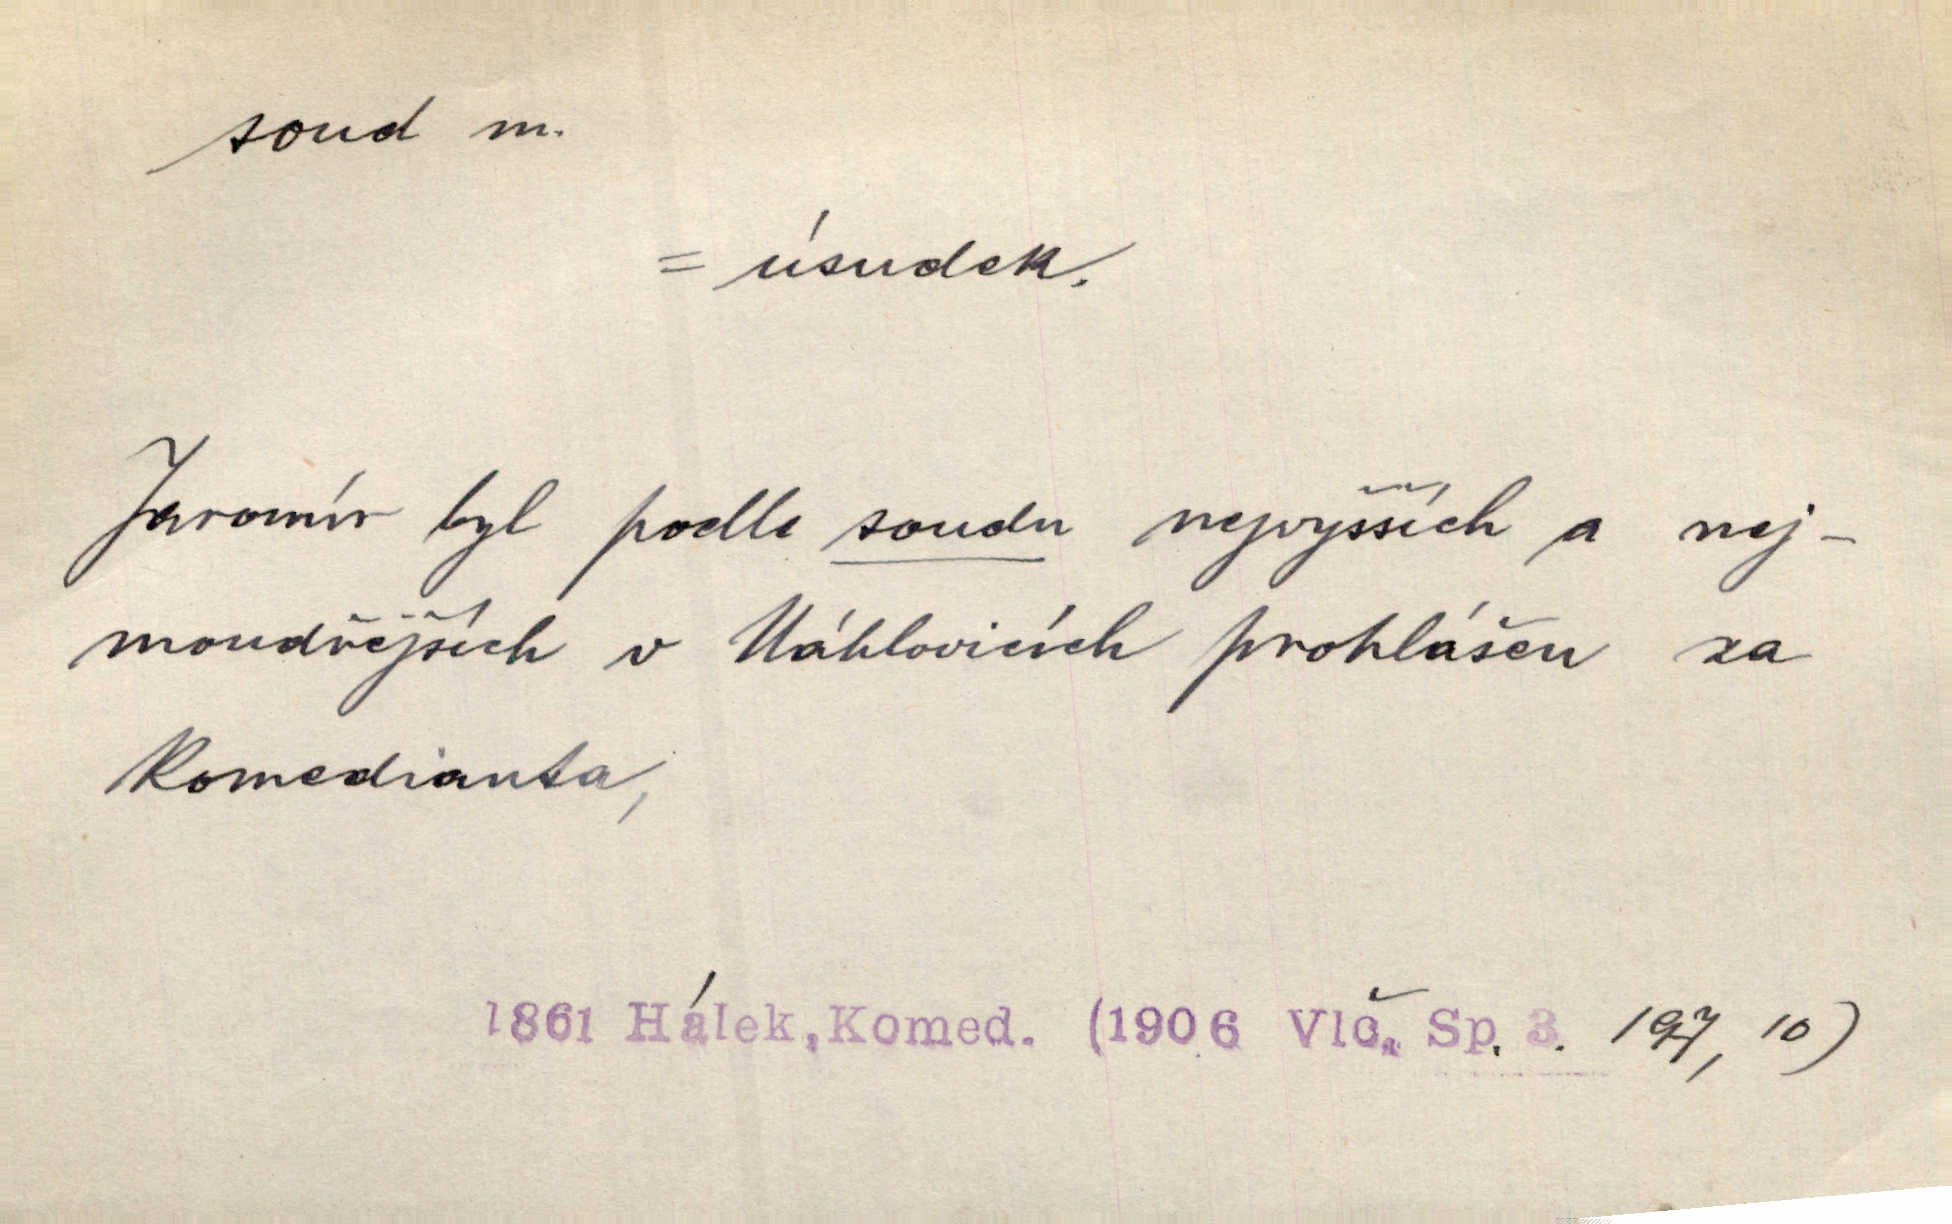 soud m.
= úsudek.
Jaromír byl podle soudu nejvyšších a nej-
moudřejších v Náhlovicích prohlášen za
komedianta;
1861 Hálek, Komed. (1906 Vlč. Sp. 3. 197, 10)